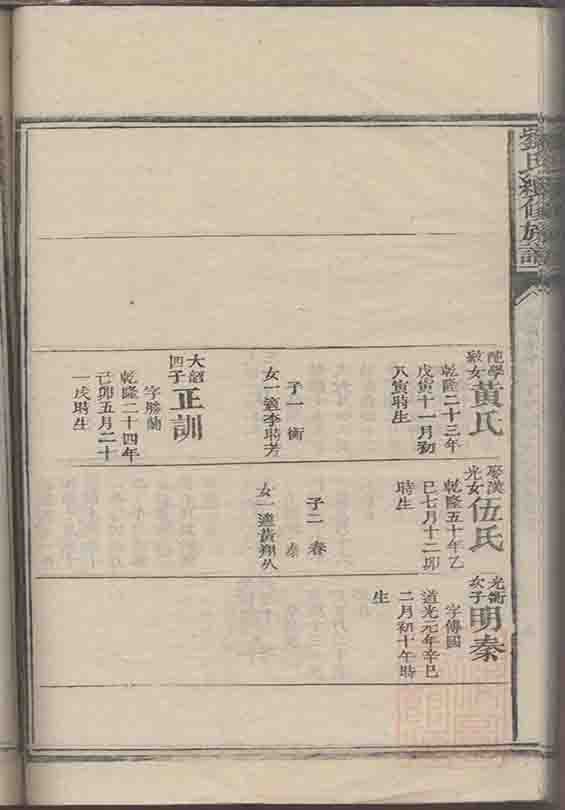 劉氏續修族譜
黃氏
乾隆二十三年
戊寅十一月初
八寅時生
子一 衡
女一適李時芳
大詔
四子
正訓
字勝蘭
乾隆二十四年
己卯五月二十
一戌時生
娶漢
光女
伍氏
乾隆五十年乙
巳七月十二卯
時生
子二 春
秦
女一適黃翔久
光衡
次子
明秦
字傳國
道光元年辛巳
二月初十午時
生